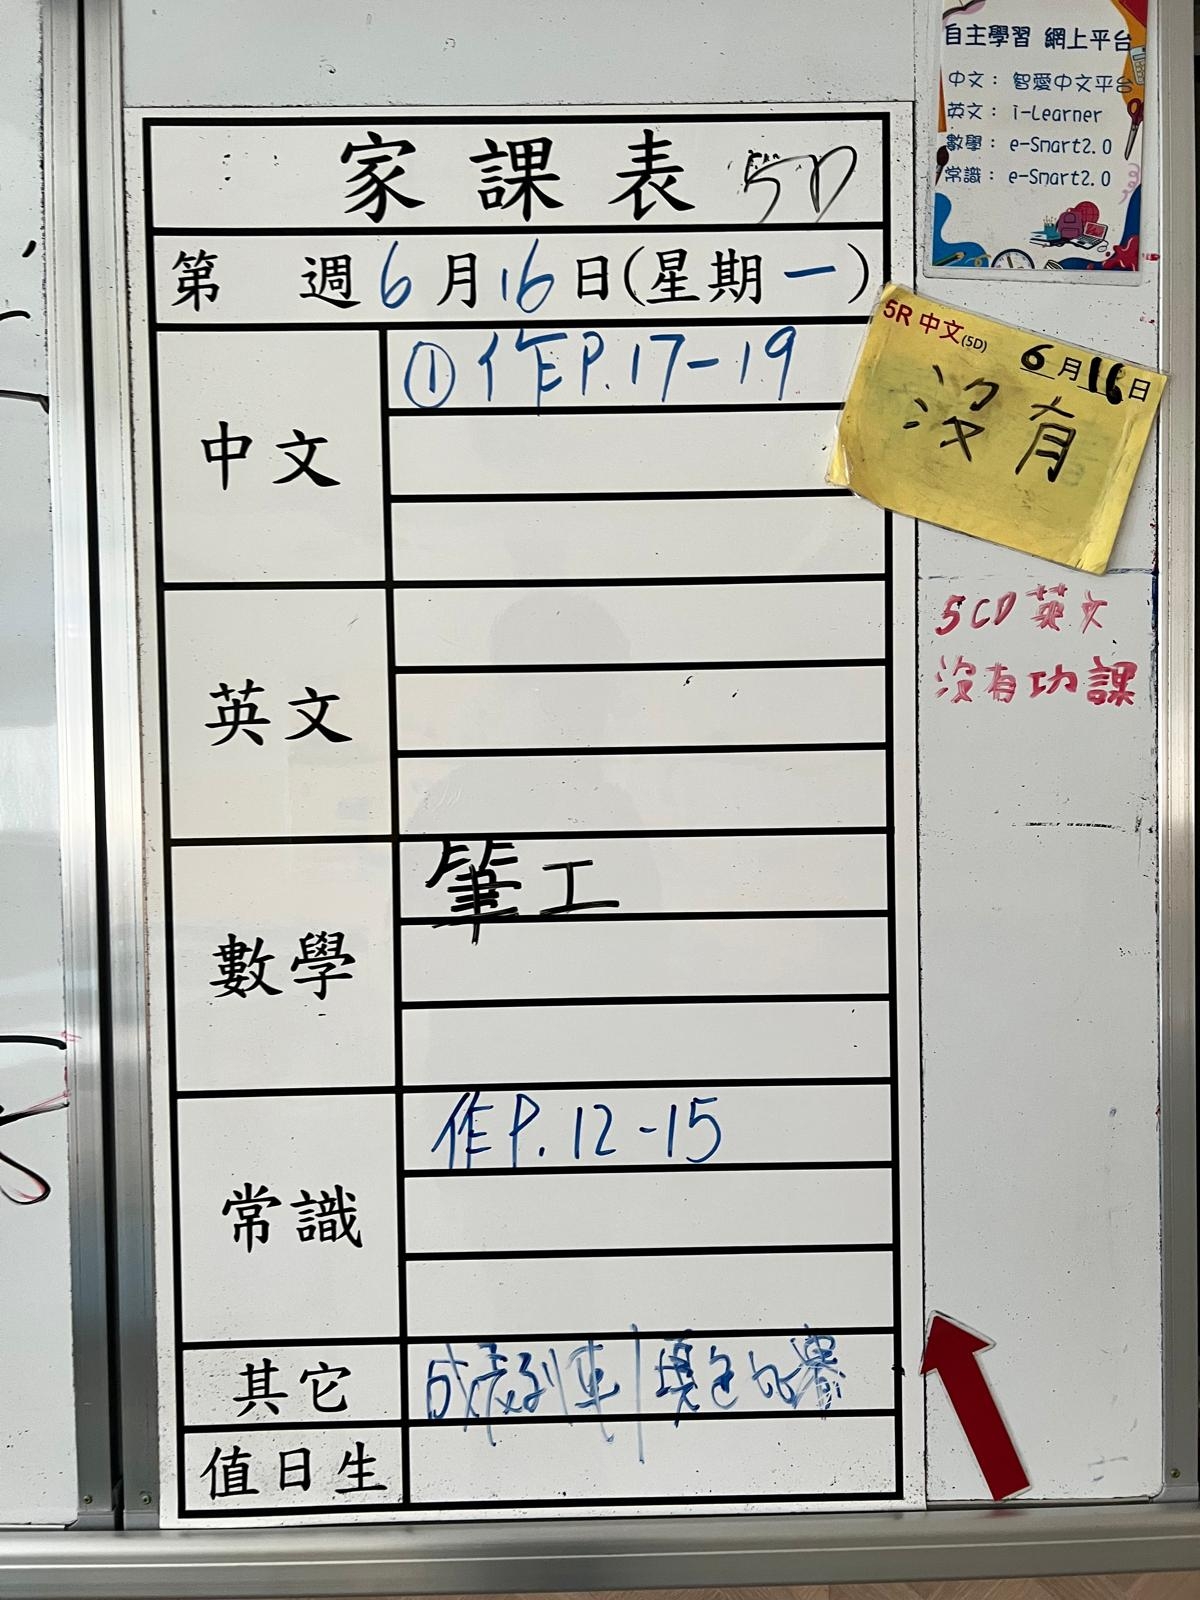 家課表 5D
第 週 6月16日(星期一)
中文
① 作P.17-19
英文
數學
筆工
常識
作P.12-15
其它
成長列車
值日生
自主學習 網上平台
中文： 智愛中文平台
英文： i-Learner
數學： e-Smart2.0
常識： e-Smart2.0
5R 中文(5D)
6月16日
沒有
5CD 英文
沒有功課